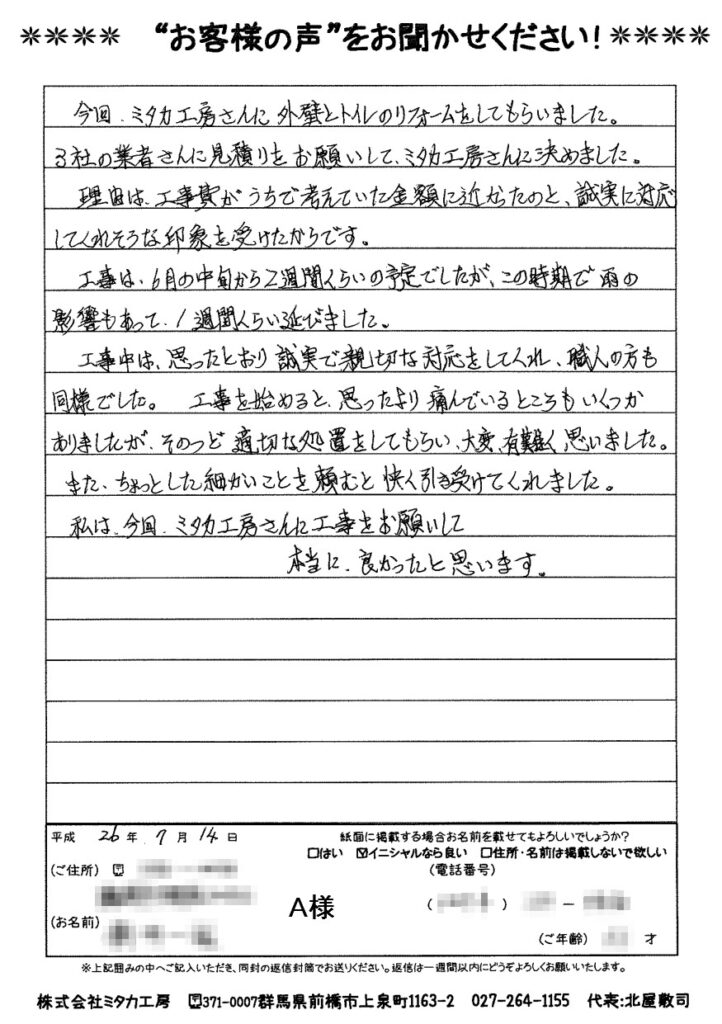 ✳✳✳✳ “お客様の声”をお聞かせください！✳✳✳✳
今回、ミタカ工房さんに外壁とトイレのリフォームをしてもらいました。
3社の業者さんに見積りをお願いして、ミタカ工房さんに決めました。
理由は、工事費がうちで考えていた金額に近かったのと、誠実に対応
してくれそうな印象を受けたからです。
工事は、6月の中旬から2週間くらいの予定でしたが、この時期で雨の
影響もあって、1週間くらい延びました。
工事中は、思ったとおり誠実で親切な対応をしてくれ、職人の方も
同様でした。 工事を始めると、思ったより痛んでいるところもいくつか
ありましたが、そのつど適切な処置をしてもらい、大変、有難く思いました。
また、ちょっとした細かいことを頼むと快く引き受けてくれました。
私は、今回、ミタカ工房さんに工事をお願いして
本当に、良かったと思います。
平成 26年 7月 14日 紙面に掲載する場合お名前を載せてもよろしいでしょうか?
□はい ☑イニシャルなら良い □住所・名前は掲載しないで欲しい
(ご住所) 〒 (電話番号)
A様 ( ) －
(お名前)
(ご年齢) 才
※上記囲みの中へご記入いただき、同封の返信封筒でお送りください。返信は一週間以内にどうぞよろしくお願いいたします。
株式会社ミタカ工房 〒371-0007群馬県前橋市上泉町1163-2 027-264-1155 代表:北屋敷司